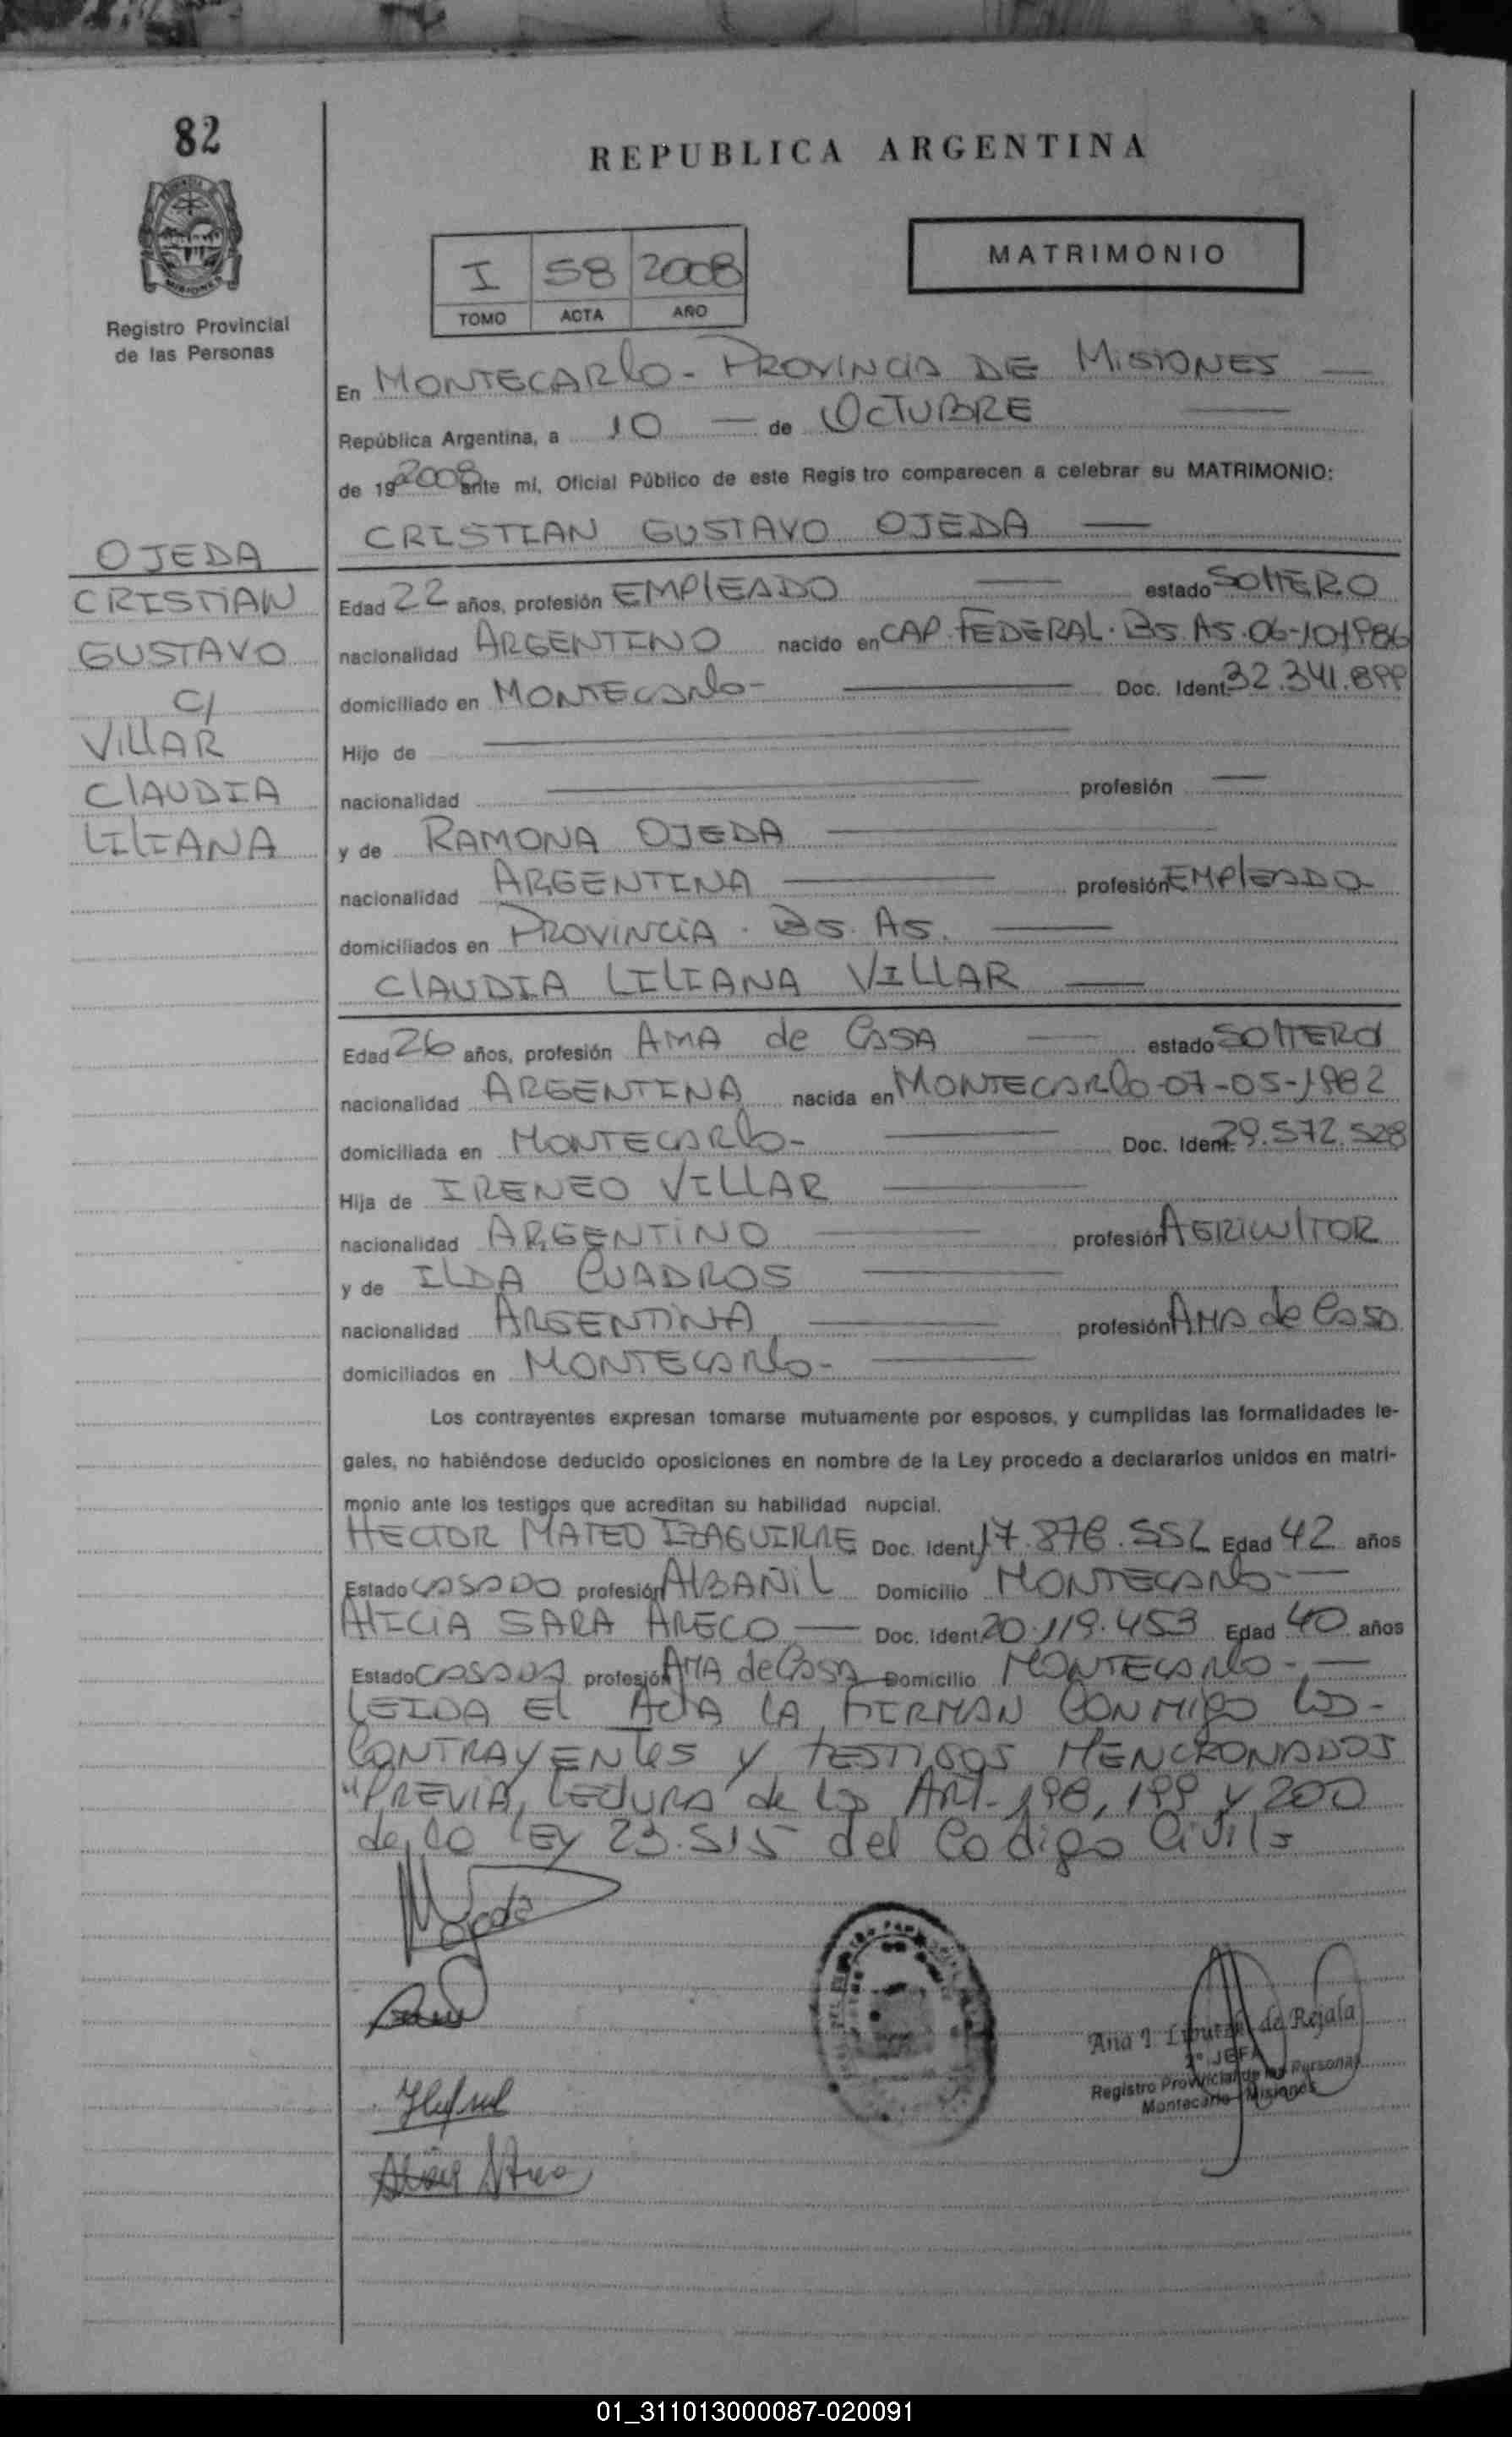 82
REPUBLICA ARGENTINA
MATRIMONIO
I 58 2008
TOMO ACTA AÑO
Registro Provincial
de las Personas
En MONTECARLO - PROVINCIA DE MISIONES
República Argentina, a 10 de OCTUBRE
de 19 2008 ante mí, Oficial Público de este Registro comparecen a celebrar su MATRIMONIO:
CRISTIAN GUSTAVO OJEDA
OJEDA
CRISTIAN
GUSTAVO
C/
VILLAR
CLAUDIA
LILIANA
Edad 22 años, profesión EMPLEADO estado SOLTERO
nacionalidad ARGENTINO nacido en CAP. FEDERAL. Bs. As. 06-10-1986
domiciliado en MONTECARLO - Doc. Ident. 32.341.899
Hijo de
nacionalidad profesión
y de RAMONA OJEDA
nacionalidad ARGENTINA profesión EMPLEADO
domiciliados en PROVINCIA. Bs. As.
CLAUDIA LILIANA VILLAR
Edad 26 años, profesión AMA de CASA estado SOLTERA
nacionalidad ARGENTINA nacida en MONTECARLO-07-05-1982
domiciliada en MONTECARLO- Doc. Ident. 29.572.528
Hija de IRENEO VILLAR
nacionalidad ARGENTINO profesión AGRICULTOR
y de ILDA CUADROS
nacionalidad ARGENTINA profesión AMA de CASA
domiciliados en MONTECARLO-
Los contrayentes expresan tomarse mutuamente por esposos, y cumplidas las formalidades le-
gales, no habiéndose deducido oposiciones en nombre de la Ley procedo a declararlos unidos en matri-
monio ante los testigos que acreditan su habilidad nupcial.
HECTOR MATEO IZAGUIRRE Doc. Ident. 17.876.552 Edad 42 años
Estado CASADO profesión ALBAÑIL Domicilio MONTECARLO-
ALICIA SARA ARECO Doc. Ident. 20.119.453 Edad 40 años
Estado CASADA profesión AMA de CASA Domicilio MONTECARLO-
LEIDA EL ACTA LA FIRMAN CONMIGO LOS-
CONTRAYENTES Y TESTIGOS MENCIONADOS
"PREVIA, LECTURA de los ART- 198, 199 y 200
de la LEY 23.515 del Codigo Civil-
Ana I. de Rejala
2° JEFA
Registro Provincial de las Personas
Montecarlo - Misiones
01_311013000087-020091